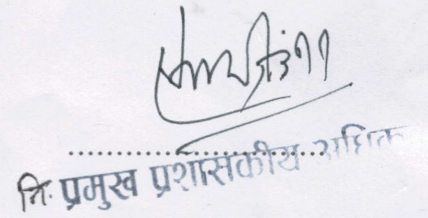 नि. प्रमुख प्रशासकीय अधिक